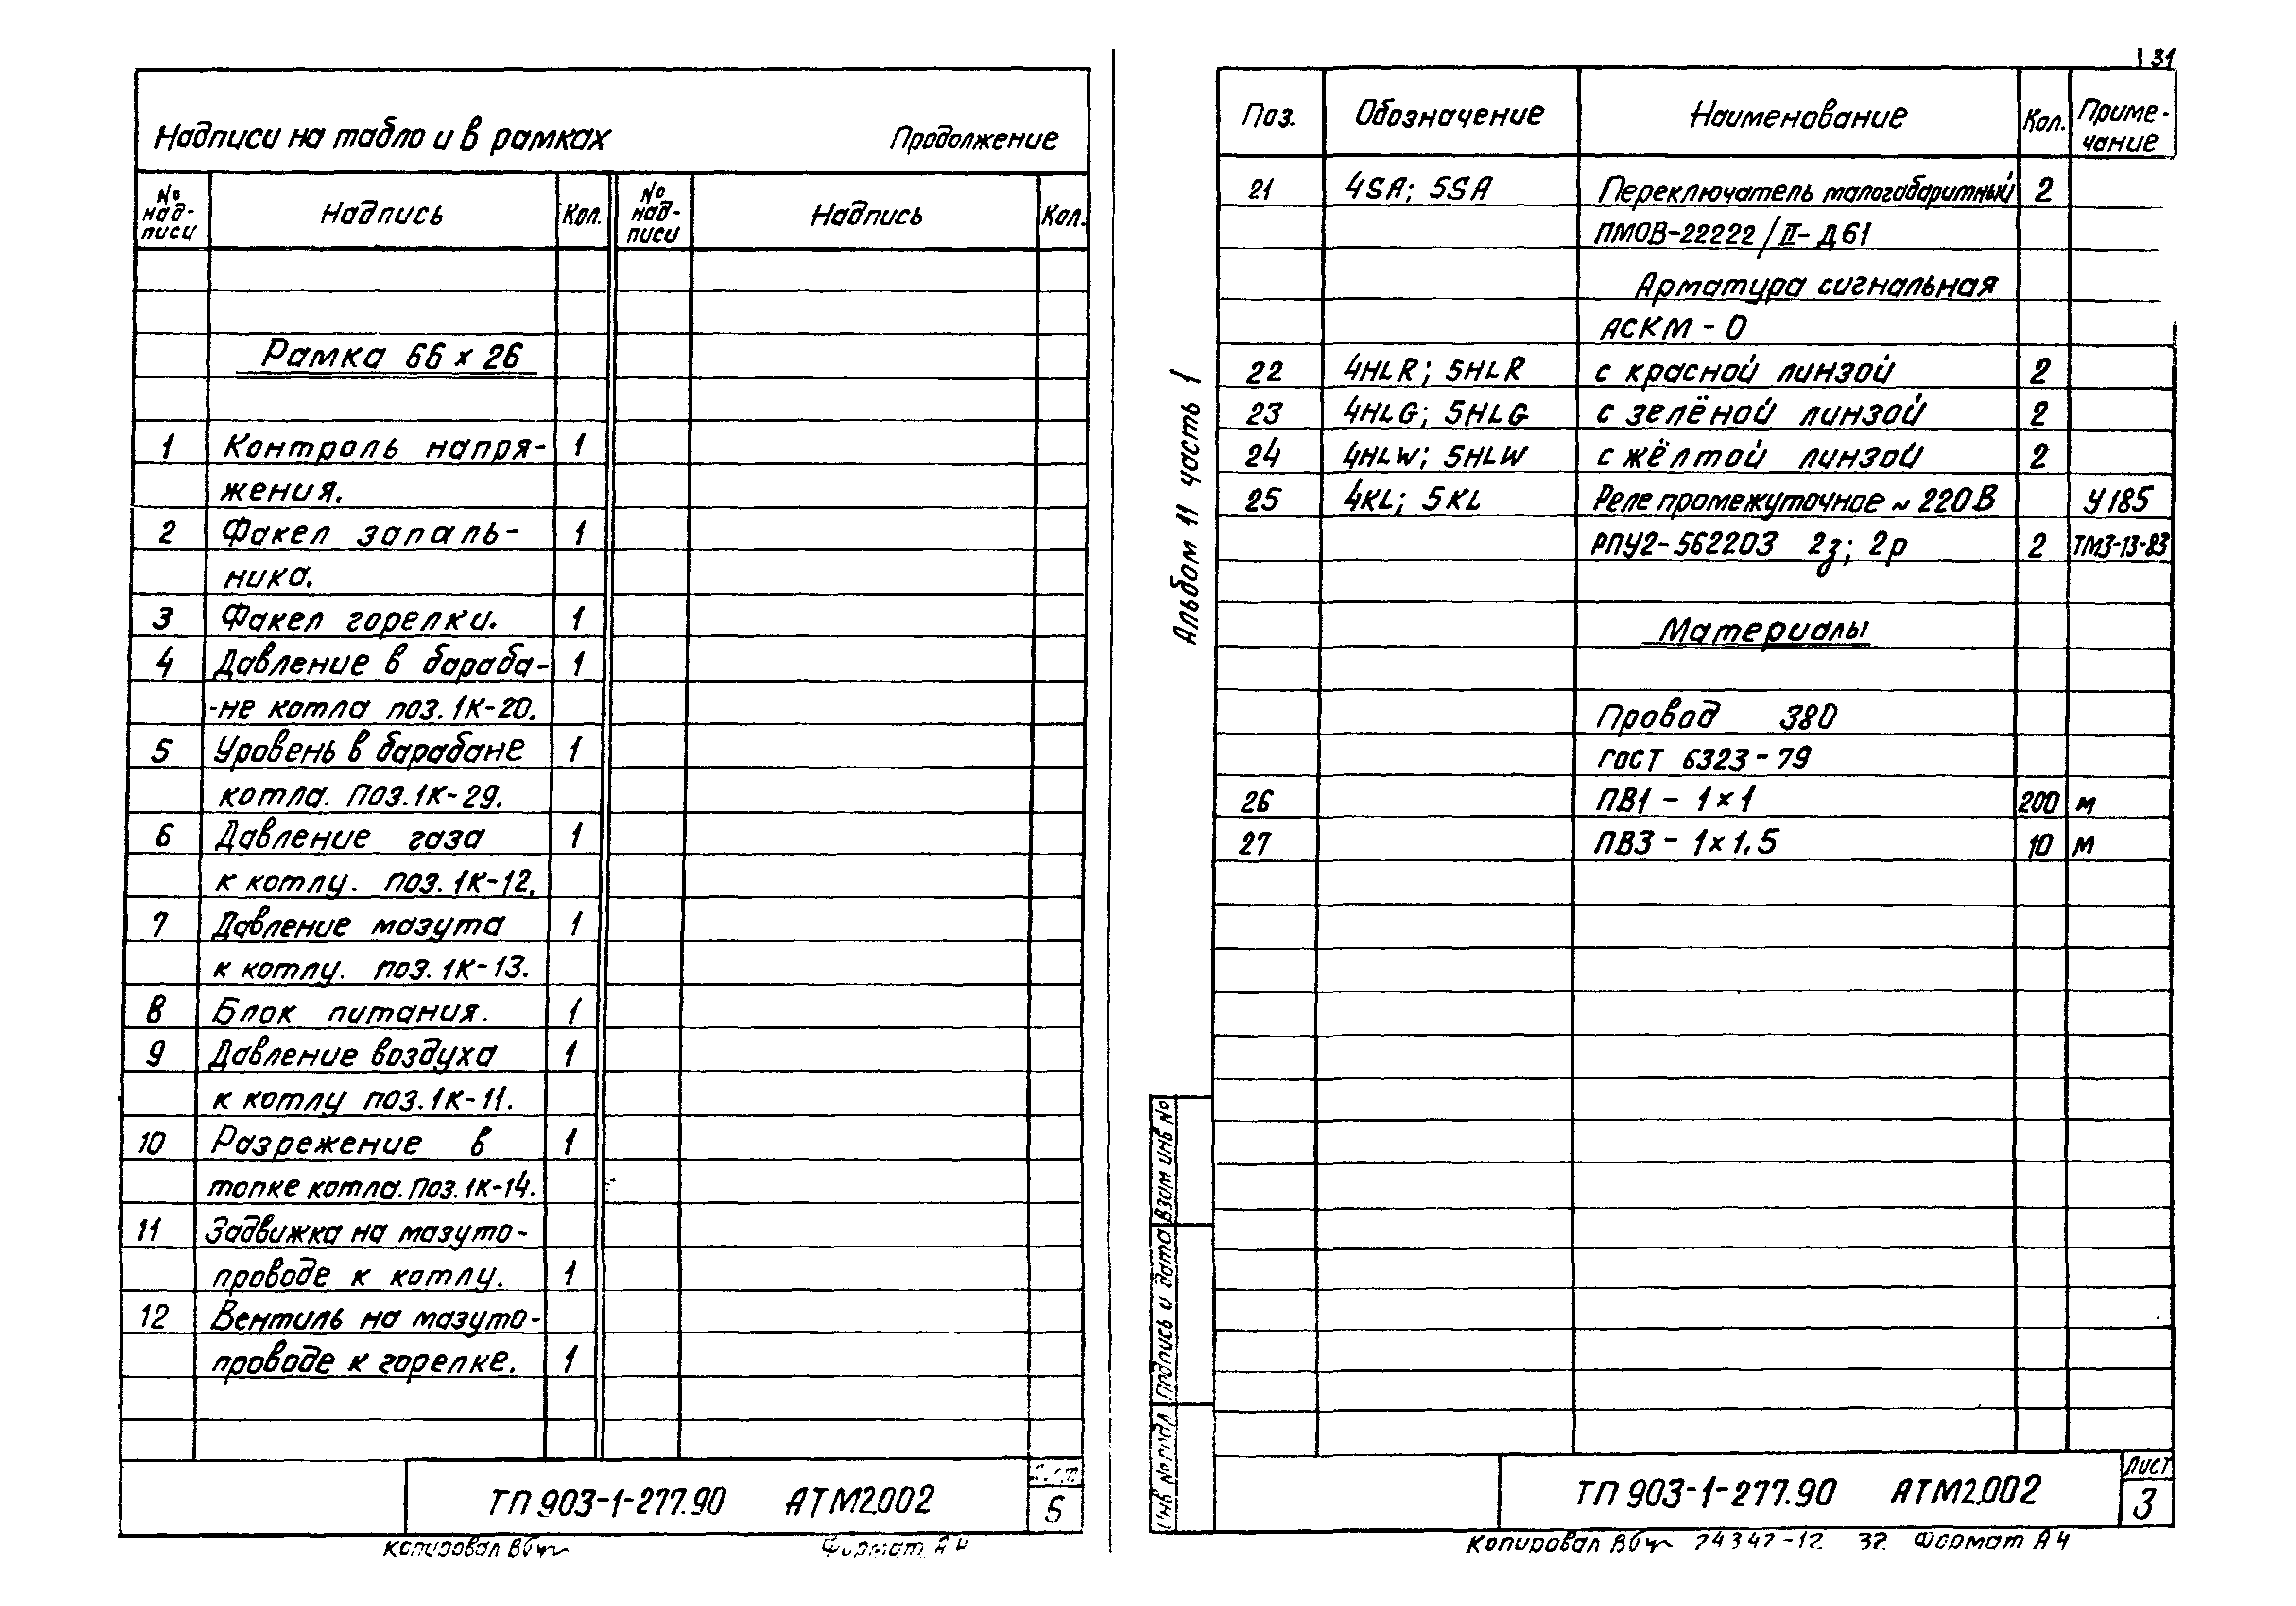 Надписи на табло и в рамках Продолжение
№ надписи Надпись Кол. № надписи Надпись Кол.
Рамка 66 х 26
1 Контроль напря- 1
жения.
2 Факел запаль- 1
ника.
3 Факел горелки. 1
4 Давление в бараба- 1
-не котла поз. 1К-20.
5 Уровень в барабане 1
котла. поз. 1К-29.
6 Давление газа 1
к котлу. поз. 1К-12.
7 Давление мазута 1
к котлу. поз. 1К-13.
8 Блок питания. 1
9 Давление воздуха 1
к котлу поз. 1К-11.
10 Разрежение в 1
топке котла. поз. 1К-14.
11 Задвижка на мазуто-
проводе к котлу. 1
12 Вентиль на мазуто-
проводе к горелке. 1
ТП 903-1-277.90 АТМ2.002
Лист
Копировал Формат А4
31
Поз. Обозначение Наименование Кол. Приме-
чание
21 4SA; 5SA Переключатель малогабаритный 2
ПМОВ-22222/II-Д61
Арматура сигнальная
АСКМ - 0
22 4HLR; 5HLR с красной линзой 2
23 4HLG; 5HLG с зелёной линзой 2
24 4HLW; 5HLW с жёлтой линзой 2
25 4KL; 5KL Реле промежуточное ~ 220В У185
РПУ2-562203 2з; 2р 2 ТМ3-13-83
Материалы
Провод 380
ГОСТ 6323-79
26 ПВ1 - 1×1 200 м
27 ПВ3 - 1×1,5 10 м
Альбом 11 часть 1
Взам инв №
Подпись и дата
Инв № подл
ТП 903-1-277.90 АТМ2.002
Лист
3
Копировал 24347-12 32 Формат А4